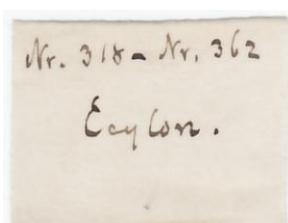 Nr. 318 - Nr. 362
Ceylon.